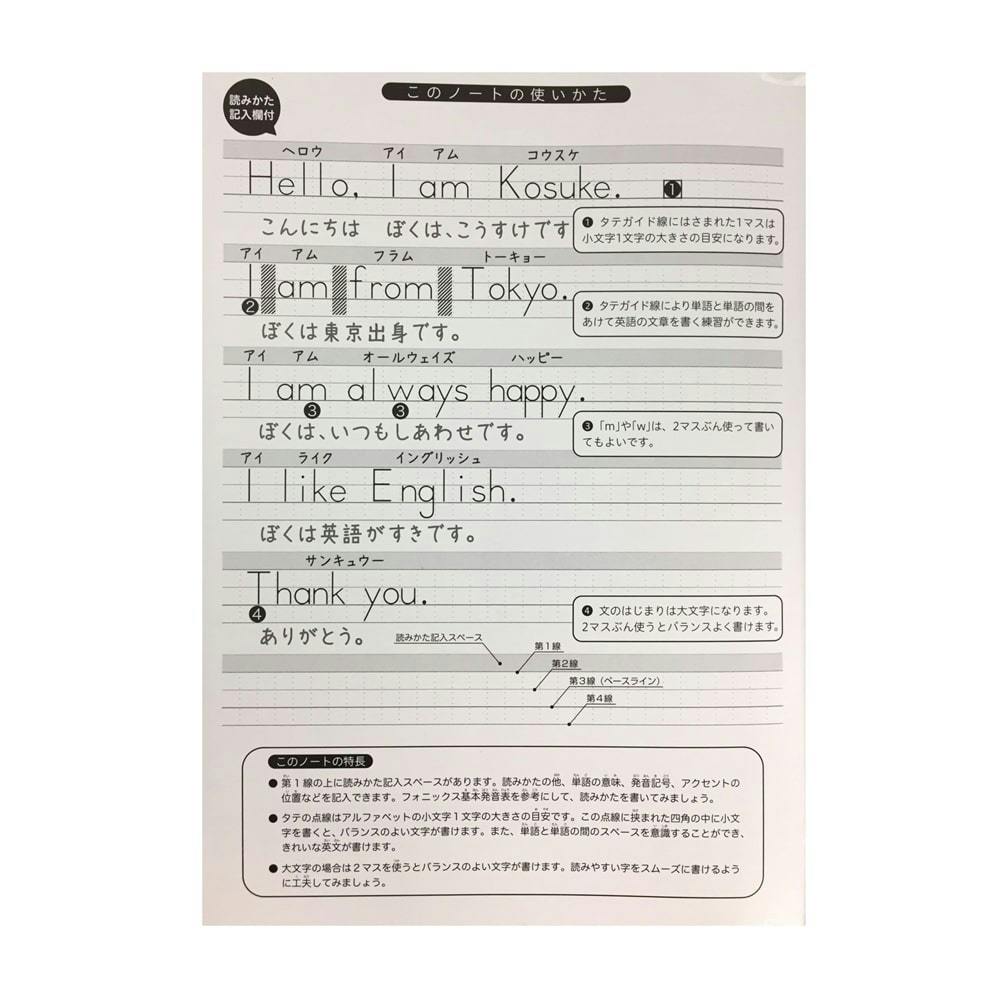 読みかた
記入欄付
このノートの使いかた
ヘロウ アイ アム コウスケ
Hello, I am Kosuke. ❶
こんにちは ぼくは、こうすけです
❶ タテガイド線にはさまれた1マスは
小文字1文字の大きさの目安になります。
アイ アム フラム トーキョー
I am from Tokyo.
❷
❷ タテガイド線により単語と単語の間を
あけて英語の文章を書く練習ができます。
ぼくは東京出身です。
アイ アム オールウェイズ ハッピー
I am always happy.
❸ ❸
❸ 「m」や「w」は、2マスぶん使って書い
てもよいです。
ぼくは、いつもしあわせです。
アイ ライク イングリッシュ
I like English.
ぼくは英語がすきです。
サンキュウー
Thank you.
❹
❹ 文のはじまりは大文字になります。
2マスぶん使うとバランスよく書けます。
ありがとう。
読みかた記入スペース
第1線
第2線
第3線（ベースライン）
第4線
このノートの特長
● 第1線の上に読みかた記入スペースがあります。読みかたの他、単語の意味、発音記号、アクセントの
位置などを記入できます。フォニックス基本発音表を参考にして、読みかたを書いてみましょう。
● タテの点線はアルファベットの小文字1文字の大きさの目安です。この点線に挟まれた四角の中に小文
字を書くと、バランスのよい文字が書けます。また、単語と単語の間のスペースを意識することができ、
きれいな英文が書けます。
● 大文字の場合は2マスを使うとバランスのよい文字が書けます。読みやすい字をスムーズに書けるよう
に工夫してみましょう。